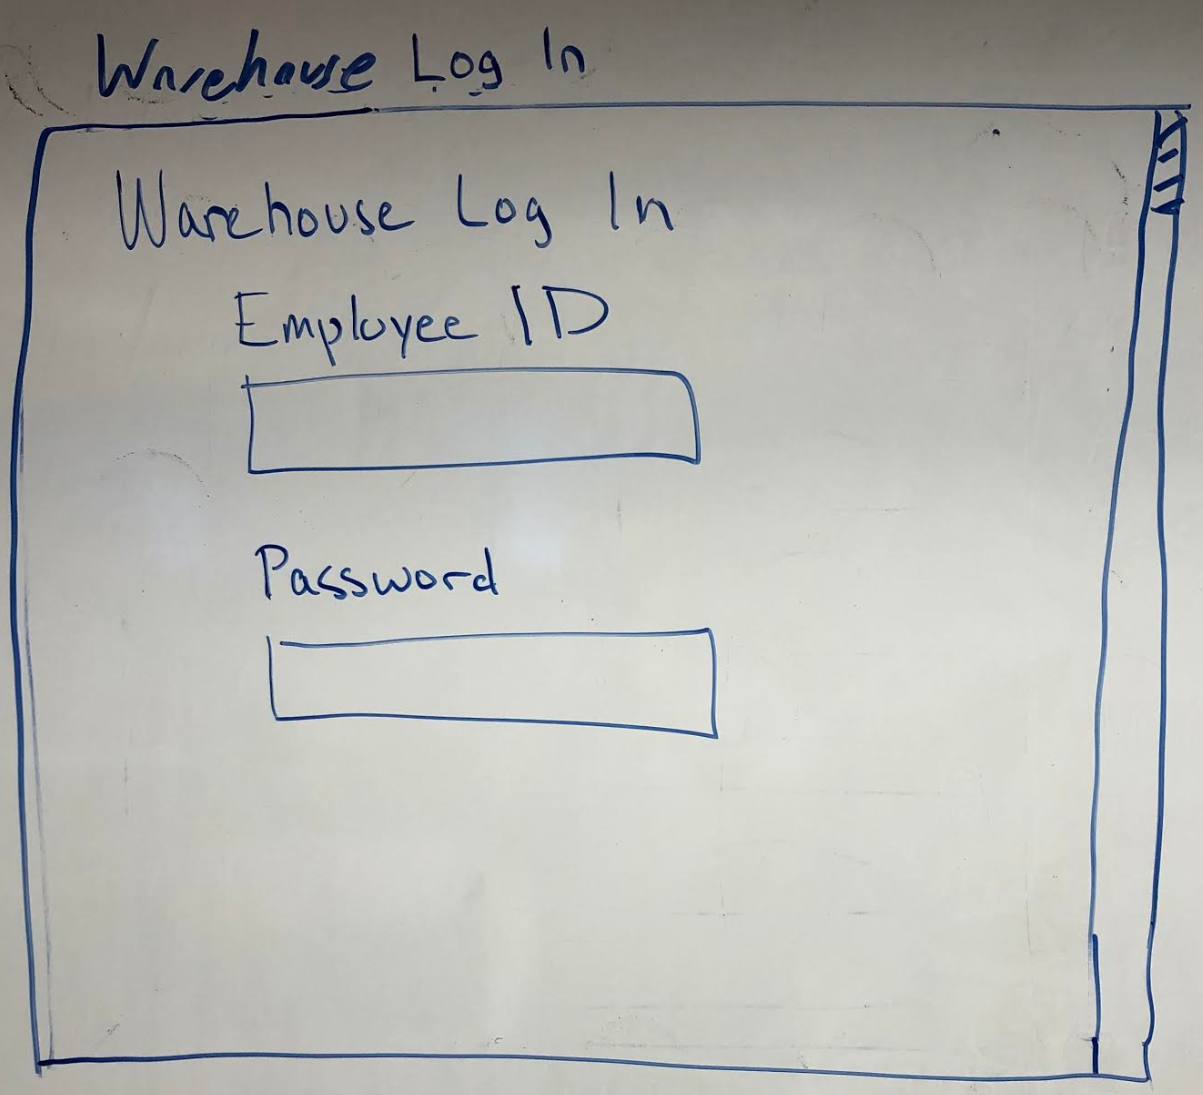 Warehouse Log In
Warehouse Log In
Employee ID
Password